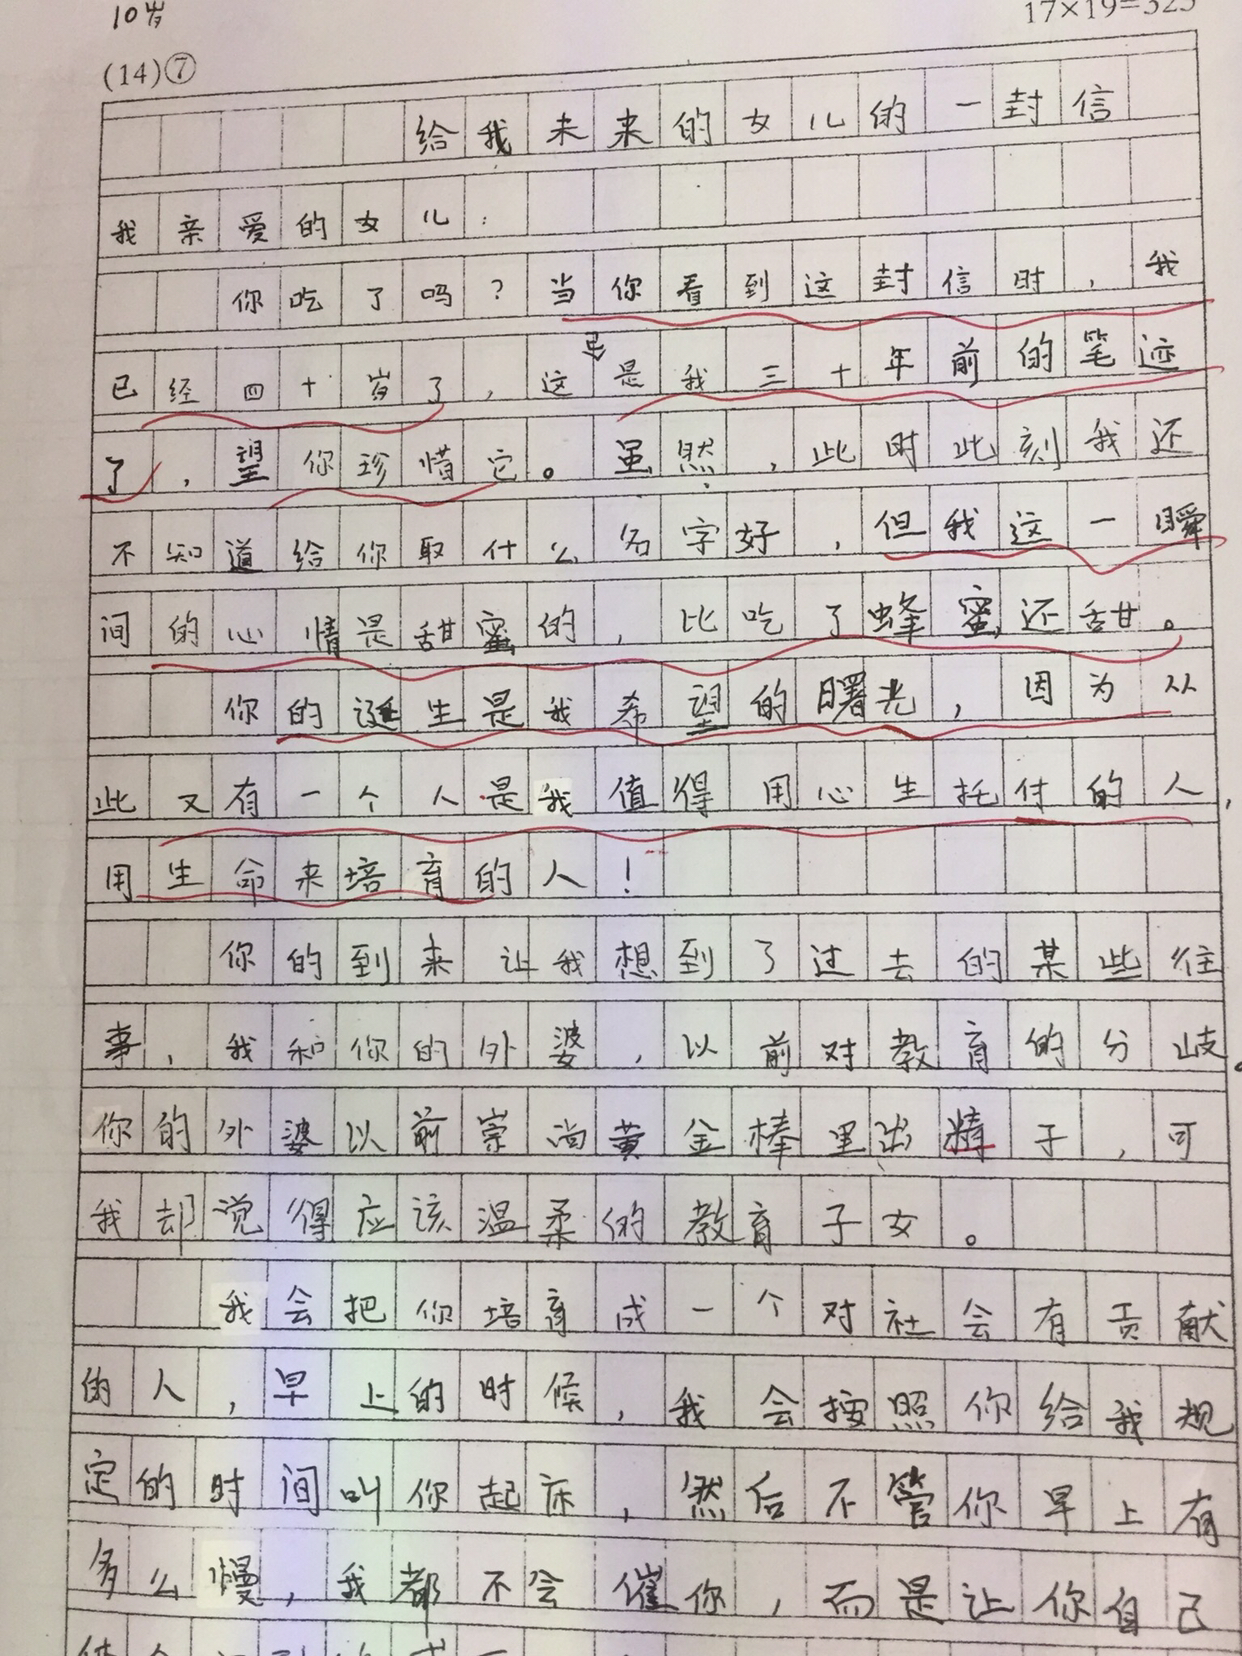 10岁
17×19=323
(14)⑦
给我未来的女儿的一封信
我亲爱的女儿：
你吃了吗？当你看到这封信时，我
已经四十岁了，这是我三十年前的笔迹
了，望你珍惜它。虽然，此时此刻我还
不知道给你取什么名字好，但我这一瞬
间的心情是甜蜜的，比吃了蜂蜜还甜。
你的诞生是我希望的曙光，因为从
此又有一个人是我值得用心生托付的人，
用生命来培育的人！
你的到来让我想到了过去的某些往
事，我和你的外婆，以前对教育的分歧。
你的外婆以前崇尚黄金棒里出精子，可
我却觉得应该温柔的教育子女。
我会把你培育成一个对社会有贡献
的人，早上的时候，我会按照你给我规
定的时间叫你起床，然后不管你早上有
多么慢，我都不会催你，而是让你自己